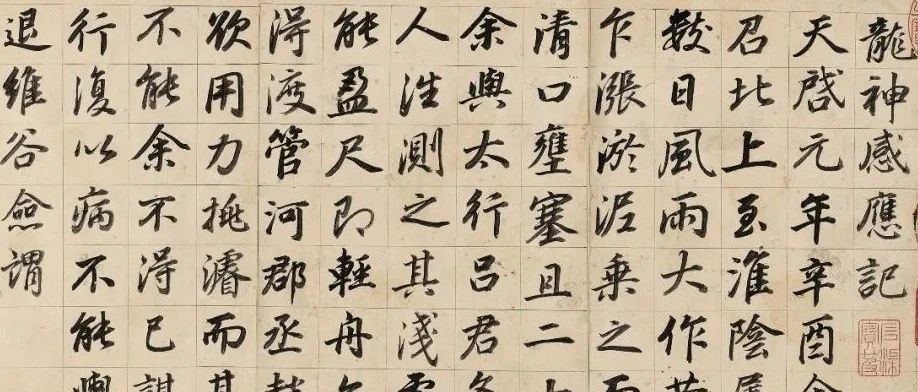 龍神感應記
天啓元年辛酉
召北上至淮陰
數日風雨大作
乍漲淤泥乗之
清口壅塞且二
余與太行呂君
人往測之其淺
能盈尺即輕舟
得渡管河郡丞
欲用力挑濬而
不能余不得已
行復以病不能
退維谷僉謂